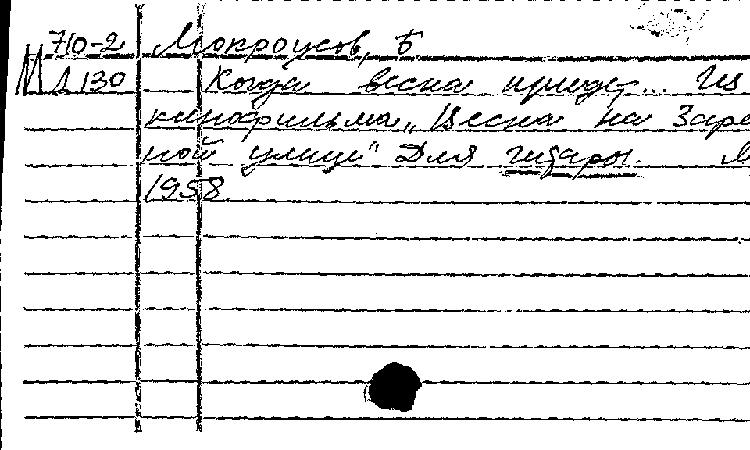 710-2 Мокроусов, Б
М Д130 Когда весна придет... Из
кинофильма „Весна на Заре
ной улице" Для гитары. М
1958.